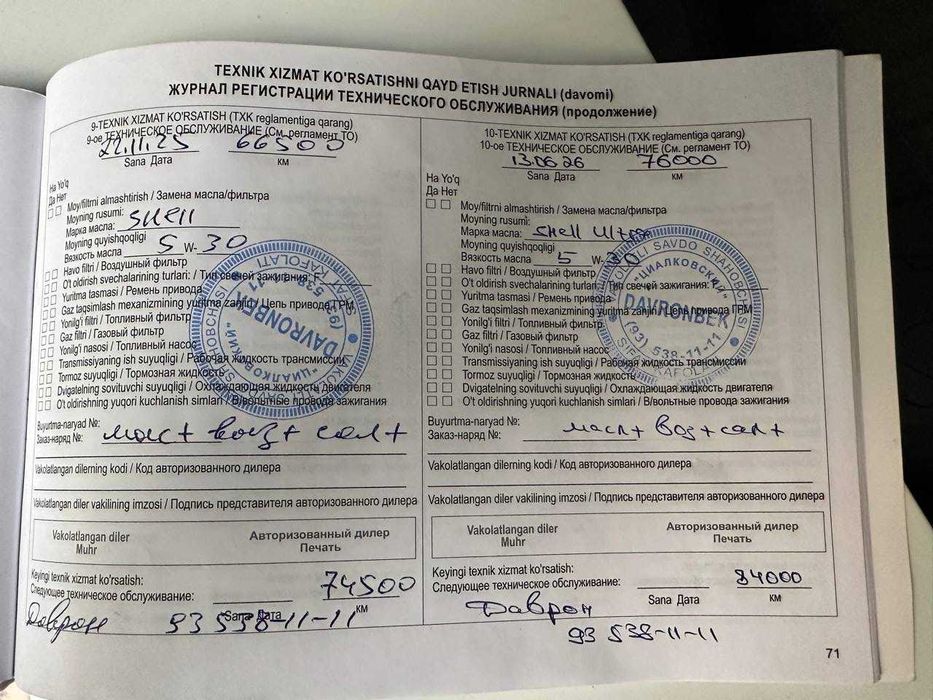 TEXNIK XIZMAT KO'RSATISHNI QAYD ETISH JURNALI (davomi)
ЖУРНАЛ РЕГИСТРАЦИИ ТЕХНИЧЕСКОГО ОБСЛУЖИВАНИЯ (продолжение)
9-TEXNIK XIZMAT KO'RSATISH (TXK reglamentiga qarang)
9-ое ТЕХНИЧЕСКОЕ ОБСЛУЖИВАНИЕ (См. регламент ТО)
22.11.25 66500
Sana Дата км
Ha Yo'q
Да Нет
Moy/filtrni almashtirish / Замена масла/фильтра
Moyning rusumi:
Марка масла: SHell
Moyning quyishqoqligi
Вязкость масла 5 W- 30
Havo filtri / Воздушный фильтр
O't oldirish svechalarining turlari: / Тип свечей зажигания:
Yuritma tasmasi / Ремень привода
Gaz taqsimlash mexanizmining yuritma zanjiri / Цепь привода ГРМ
Yonilg'i filtri / Топливный фильтр
Gaz filtri / Газовый фильтр
Yonilg'i nasosi / Топливный насос
Transmissiyaning ish suyuqligi / Рабочая жидкость трансмиссии
Tormoz suyuqligi / Тормозная жидкость
Dvigatelning sovituvchi suyuqligi / Охлаждающая жидкость двигателя
O't oldirishning yuqori kuchlanish simlari / В/вольтные провода зажигания
"ЦИАЛКОВСКИЙ"
DAVRONBEK
(93) 538-11-11
Buyurtma-naryad №:
Заказ-наряд №: масл+ воз+ сал+
Vakolatlangan dilerning kodi / Код авторизованного дилера
Vakolatlangan diler vakilining imzosi / Подпись представителя авторизованного дилера
Vakolatlangan diler Авторизованный дилер
Muhr Печать
Keyingi texnik xizmat ko'rsatish:
Следующее техническое обслуживание: 74500
Sana Дата км
Даврон 93 538-11-11
10-TEXNIK XIZMAT KO'RSATISH (TXK reglamentiga qarang)
10-ое ТЕХНИЧЕСКОЕ ОБСЛУЖИВАНИЕ (См. регламент ТО)
13.06.26 76000
Sana Дата км
Ha Yo'q
Да Нет
Moy/filtrni almashtirish / Замена масла/фильтра
Moyning rusumi:
Марка масла: SHell Ultra
Moyning quyishqoqligi
Вязкость масла 5 W- 30
Havo filtri / Воздушный фильтр
O't oldirish svechalarining turlari: / Тип свечей зажигания:
Yuritma tasmasi / Ремень привода
Gaz taqsimlash mexanizmining yuritma zanjiri / Цепь привода ГРМ
Yonilg'i filtri / Топливный фильтр
Gaz filtri / Газовый фильтр
Yonilg'i nasosi / Топливный насос
Transmissiyaning ish suyuqligi / Рабочая жидкость трансмиссии
Tormoz suyuqligi / Тормозная жидкость
Dvigatelning sovituvchi suyuqligi / Охлаждающая жидкость двигателя
O't oldirishning yuqori kuchlanish simlari / В/вольтные провода зажигания
SAVDO SHAHOBCHASI
"ЦИАЛКОВСКИЙ"
DAVRONBEK
(93) 538-11-11
Buyurtma-naryad №:
Заказ-наряд №: масл+ воз+ сал+
Vakolatlangan dilerning kodi / Код авторизованного дилера
Vakolatlangan diler vakilining imzosi / Подпись представителя авторизованного дилера
Vakolatlangan diler Авторизованный дилер
Muhr Печать
Keyingi texnik xizmat ko'rsatish:
Следующее техническое обслуживание: 84000
Sana Дата км
Даврон
93 538-11-11
71